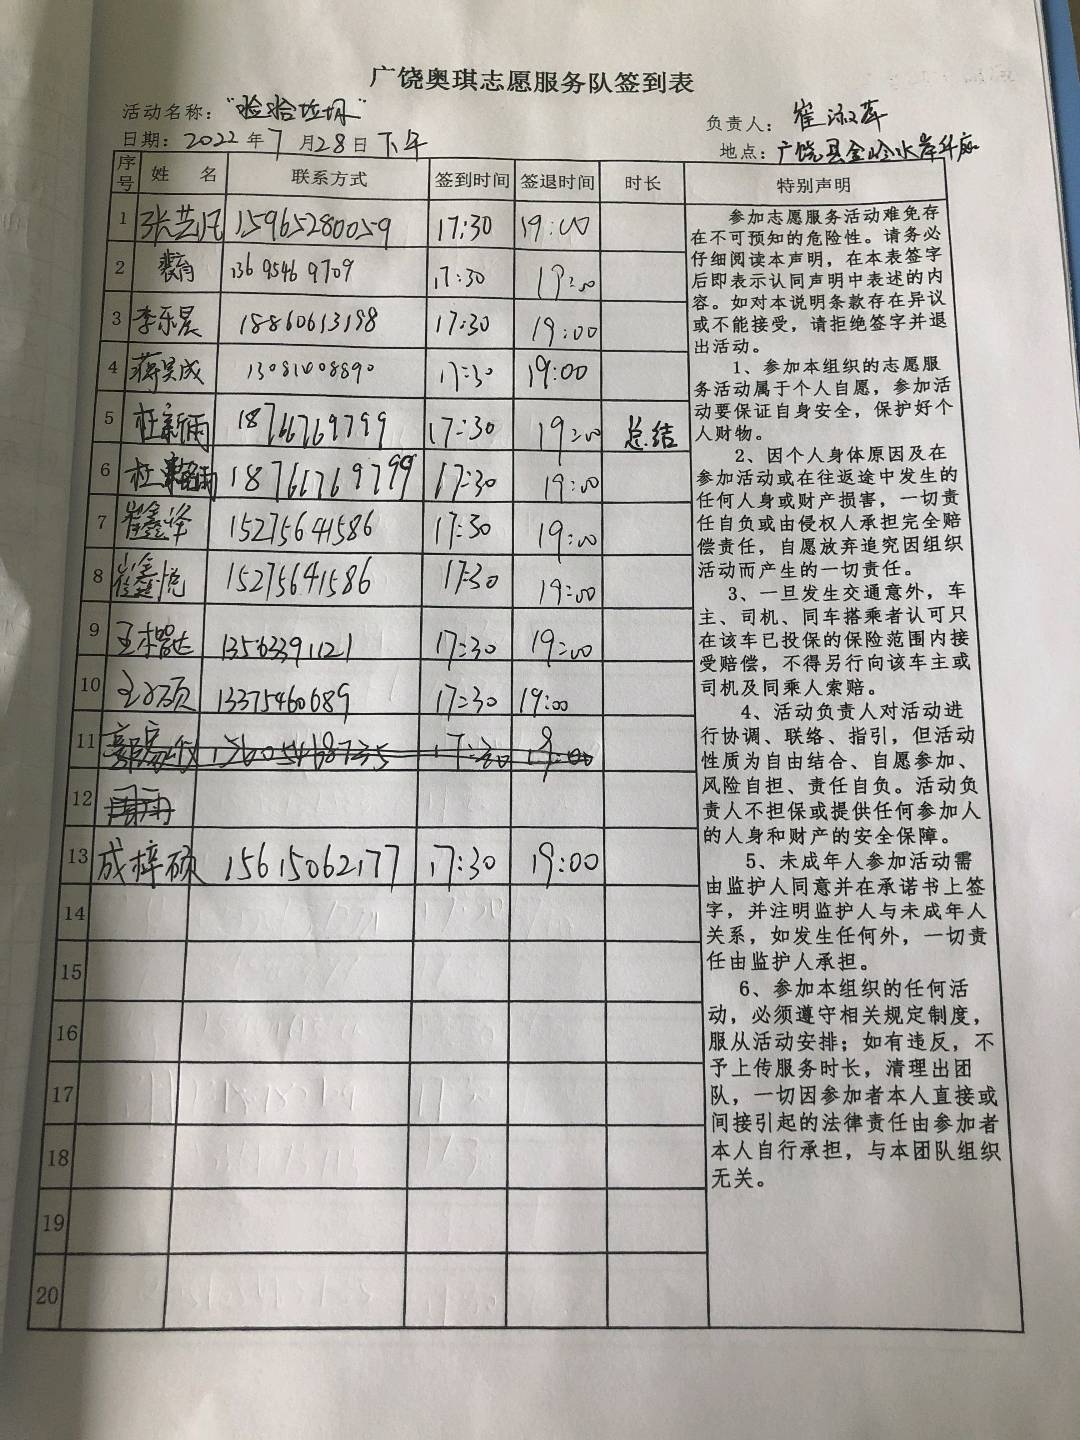 广饶奥琪志愿服务队签到表
活动名称："捡捡垃圾"
负责人：崔淑萍
日期：2022年7月28日下午
地点：广饶县金岭水岸
序号 姓 名 联系方式 签到时间 签退时间 时长 特别声明
1 张芸凡 15965280059 17:30 19:00
2 13695469709 17:30 19:00
3 李乐晨 18860613198 17:30 19:00
4 蒋昊成 13081008890 17:30 19:00
5 杜新雨 18766769799 17:30 19:00 总结
6 杜 雨 18766769799 17:30 19:00
7 崔鑫泽 15275641586 17:30 19:00
8 崔鑫悦 15275641586 17:30 19:00
9 王 达 13563391121 17:30 19:00
10 王 硕 13375460689 17:30 19:00
11 15605468735 17:30 19:00
12
13 成梓硕 15615062177 17:30 19:00
14
15
16
17
18
19
20
参加志愿服务活动难免存
在不可预知的危险性。请务必
仔细阅读本声明，在本表签字
后即表示认同声明中表述的内
容。如对本说明条款存在异议
或不能接受，请拒绝签字并退
出活动。
1、参加本组织的志愿服
务活动属于个人自愿，参加活
动要保证自身安全，保护好个
人财物。
2、因个人身体原因及在
参加活动或在往返途中发生的
任何人身或财产损害，一切责
任自负或由侵权人承担完全赔
偿责任，自愿放弃追究因组织
活动而产生的一切责任。
3、一旦发生交通意外，车
主、司机、同车搭乘者认可只
在该车已投保的保险范围内接
受赔偿，不得另行向该车主或
司机及同乘人索赔。
4、活动负责人对活动进
行协调、联络、指引，但活动
性质为自由结合、自愿参加、
风险自担、责任自负。活动负
责人不担保或提供任何参加人
的人身和财产的安全保障。
5、未成年人参加活动需
由监护人同意并在承诺书上签
字，并注明监护人与未成年人
关系，如发生任何外，一切责
任由监护人承担。
6、参加本组织的任何活
动，必须遵守相关规定制度，
服从活动安排；如有违反，不
予上传服务时长，清理出团
队，一切因参加者本人直接或
间接引起的法律责任由参加者
本人自行承担，与本团队组织
无关。